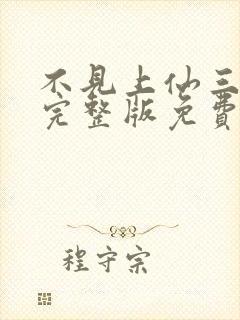 不見上仙三
完整版免費
程守宗